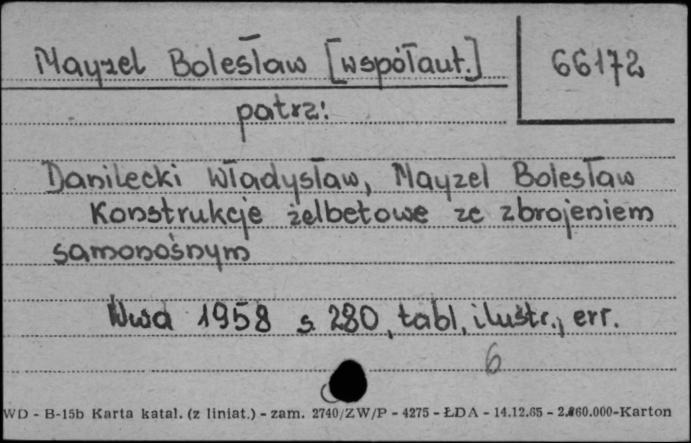 Mayzel Bolesław [współaut.] 66172
patrz:
Danilecki Władysław, Mayzel Bolesław
Konstrukcje żelbetowe ze zbrojeniem
samonośnym
Wwa 1958 s. 280, tabl., ilustr., err.
6
WD - B-15b Karta katal. (z liniat.) - zam. 2740/ZW/P - 4275 - ŁDA - 14.12.65 - 2.860.000-Karton